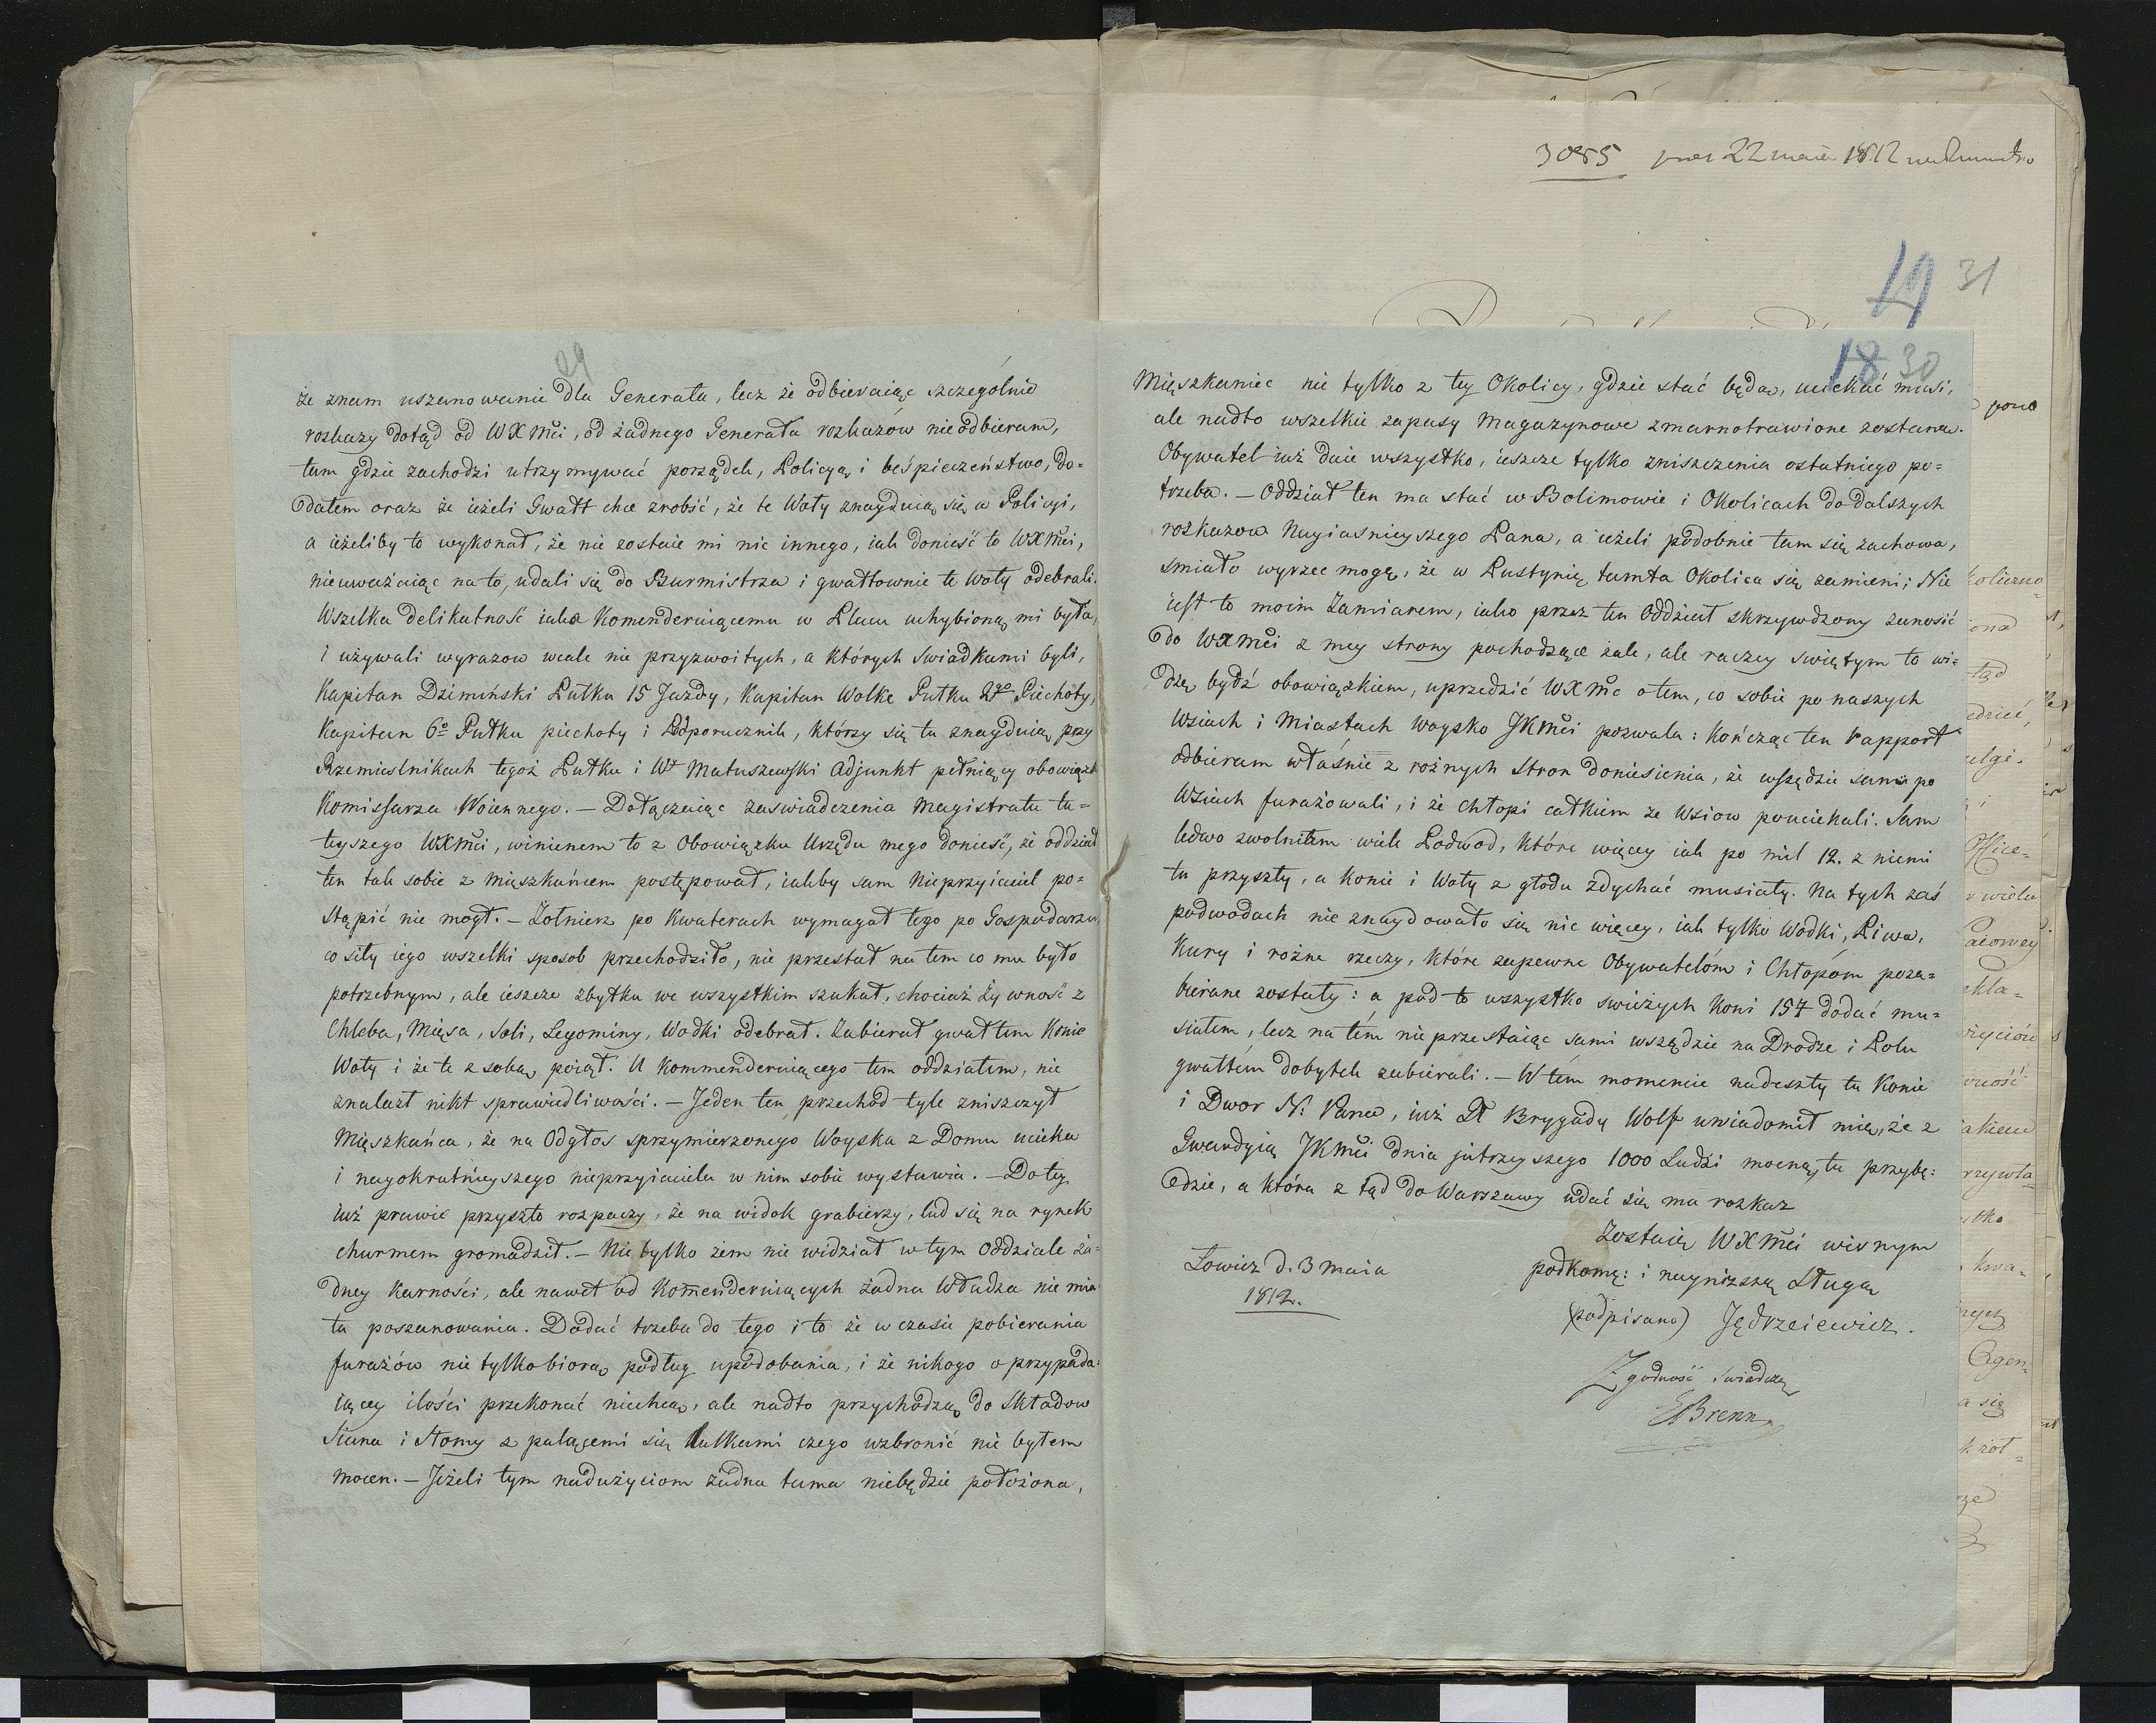 29
że znam uszanowanie dla Generała, lecz że odbieraiąc szczególnie
roskazy dotąd od WXMci, od żadnego Generała rozkazów nie odbieram,
tam gdzie zachodzi utrzymywać porządek, Policyą, i beśpieczeństwo, do=
dałem oraz że ieżeli Gwałt chce zrobić, że te Woły znayduią się w Policyi,
a ieżeliby to wykonał, że nie zostaie mi nic innego, iak donieść to WXMci,
nieuważaiąc na to, udali się do Burmistrza i gwałtownie te Woły odebrali.
Wszelka delikatność iako Komenderuiącemu w Placu uchybioną mi była,
i używali wyrazow wcale nie przyzwoitych, a których swiadkami byli,
Kapitan Dzimiński Pułku 15 Jazdy, Kapitan Wolke Pułku 2go Piechoty,
Kapitan 6o Pułku piechoty i Podporucznik, którzy się tu znayduią przy
Rzemieslnikach tegoż Pułku i Wł Matuszewski Adjunkt pełniący obowiązk
Komissarza Woiennego. — Dołączaiąc zaswiadczenia Magistratu tu=
teyszego WXMci, winienem to z Obowiązku Urzędu mego donieść, że oddział
ten tak sobie z Mięszkańcem postępował, iakby sam Nieprzyiaciel po=
stąpić nie mogł. — Żołnierz po Kwaterach wymagał tego po Gospodarzu,
co siły iego wszelki sposob przechodziło, nie przestał na tem co mu było
potrzebnym, ale ieszcze zbytku we wszystkim szukał, chociaż Żywność z
Chleba, Mięsa, Soli, Legominy, Wodki odebrał. Zabierał gwałtem Konie
Woły i że te z sobą poiął. U Kommenderuiącego tem oddziałem, nie
znalazł nikt sprawiedliwości. — Jeden ten przechod tyle zniszczył
Mięszkańca, że na Odgłos sprzymierzonego Woyska z Domu ucieka
i nayokrutnieyszego nieprzyiaciela w nim sobie wystawia. — Do tey
iuż prawie przyszło rozpaczy, że na widok grabierzy, lud się na rynek
churmem gromadził. — Nie tylko żem nie widział w tym Oddziale ża=
dney Karności, ale nawet od Komenderuiących żadna Władza nie mia
ła poszanowania. Dodać trzeba do tego i to że w czasie pobierania
furażów nie tylko biorą podług upodobania, i że nikogo o przypada=
iącey ilości przekonać niechcą, ale nadto przychodzą do Składow
Siana i Słomy z palącemi się lulkami czego wzbronić nie byłem
mocen. — Jeżeli tym nadużyciom żadna tama niebędzie położona,
3085 22 1812
19 31
18 30
Mięszkaniec nie tylko z tey Okolicy, gdzie stać będą, uciekać musi,
ale nadto wszelkie zapasy Magazynowe zmarnotrawione zostaną.
Obywatel iuż daie wszystko, ieszcze tylko zniszczenia ostatniego po=
trzeba. — Oddział ten ma stać w Bolimowie i Okolicach do dalszych
rozkazow Nayiasnieyszego Pana, a ieżeli podobnie tam się zachowa,
smiało wyrzec mogę, że w Pustynię tamta Okolica się zamieni; Nie
iest to moim Zamiarem, iako przez ten Oddział skrzywdzony zanosić
do WXMci z mey strony pochodzące żale, ale raczey swiętym to wi=
dzę bydź obowiązkiem, uprzedzić WXMc o tem, co sobie po naszych
Wsiach i Miastach Woysko JKMci pozwala: Kończąc ten rapport
odbieram właśnie z rożnych Stron doniesienia, że wszędzie sami po
Wsiach furażowali, i że Chłopi całkiem ze Wsiow pouciekali. Sam
ledwo zwolniłem wiele Podwod, które więcey iak po mil 12. z niemi
tu przyszły, a Konie i Woły z głodu zdychać musiały. Na tych zaś
podwodach nie znaydowało się nic więcey, iak tylko Wodki, Piwa,
Kury i rożne rzeczy, które zapewne Obywatelóm i Chłopóm poza=
bierane zostały: a pod to wszystko swieżych Koni 157 dodać mu=
siałem, lecz na tém nieprzestaiąc sami wszędzie na Drodze i Polu
gwałtém dobytek zabierali. — W tém momencie nadeszły tu Konie
i Dwor N: Pana, iuż Brygady Wolf uwiadomił mię, że z
Gwardyią JKMci dnia jutrzeyszego 1000 Ludzi mocną, tu przybę=
dzie, a która z tąd do Warszawy udać się ma rozkaz
Zostaię WXMci wiernym
podkomę: i nayniższą Sługą
Łowicz d. 3 Maia
1812.
(podpisano) Jędrzeiewicz.
Zgodność świadczę
Brenn